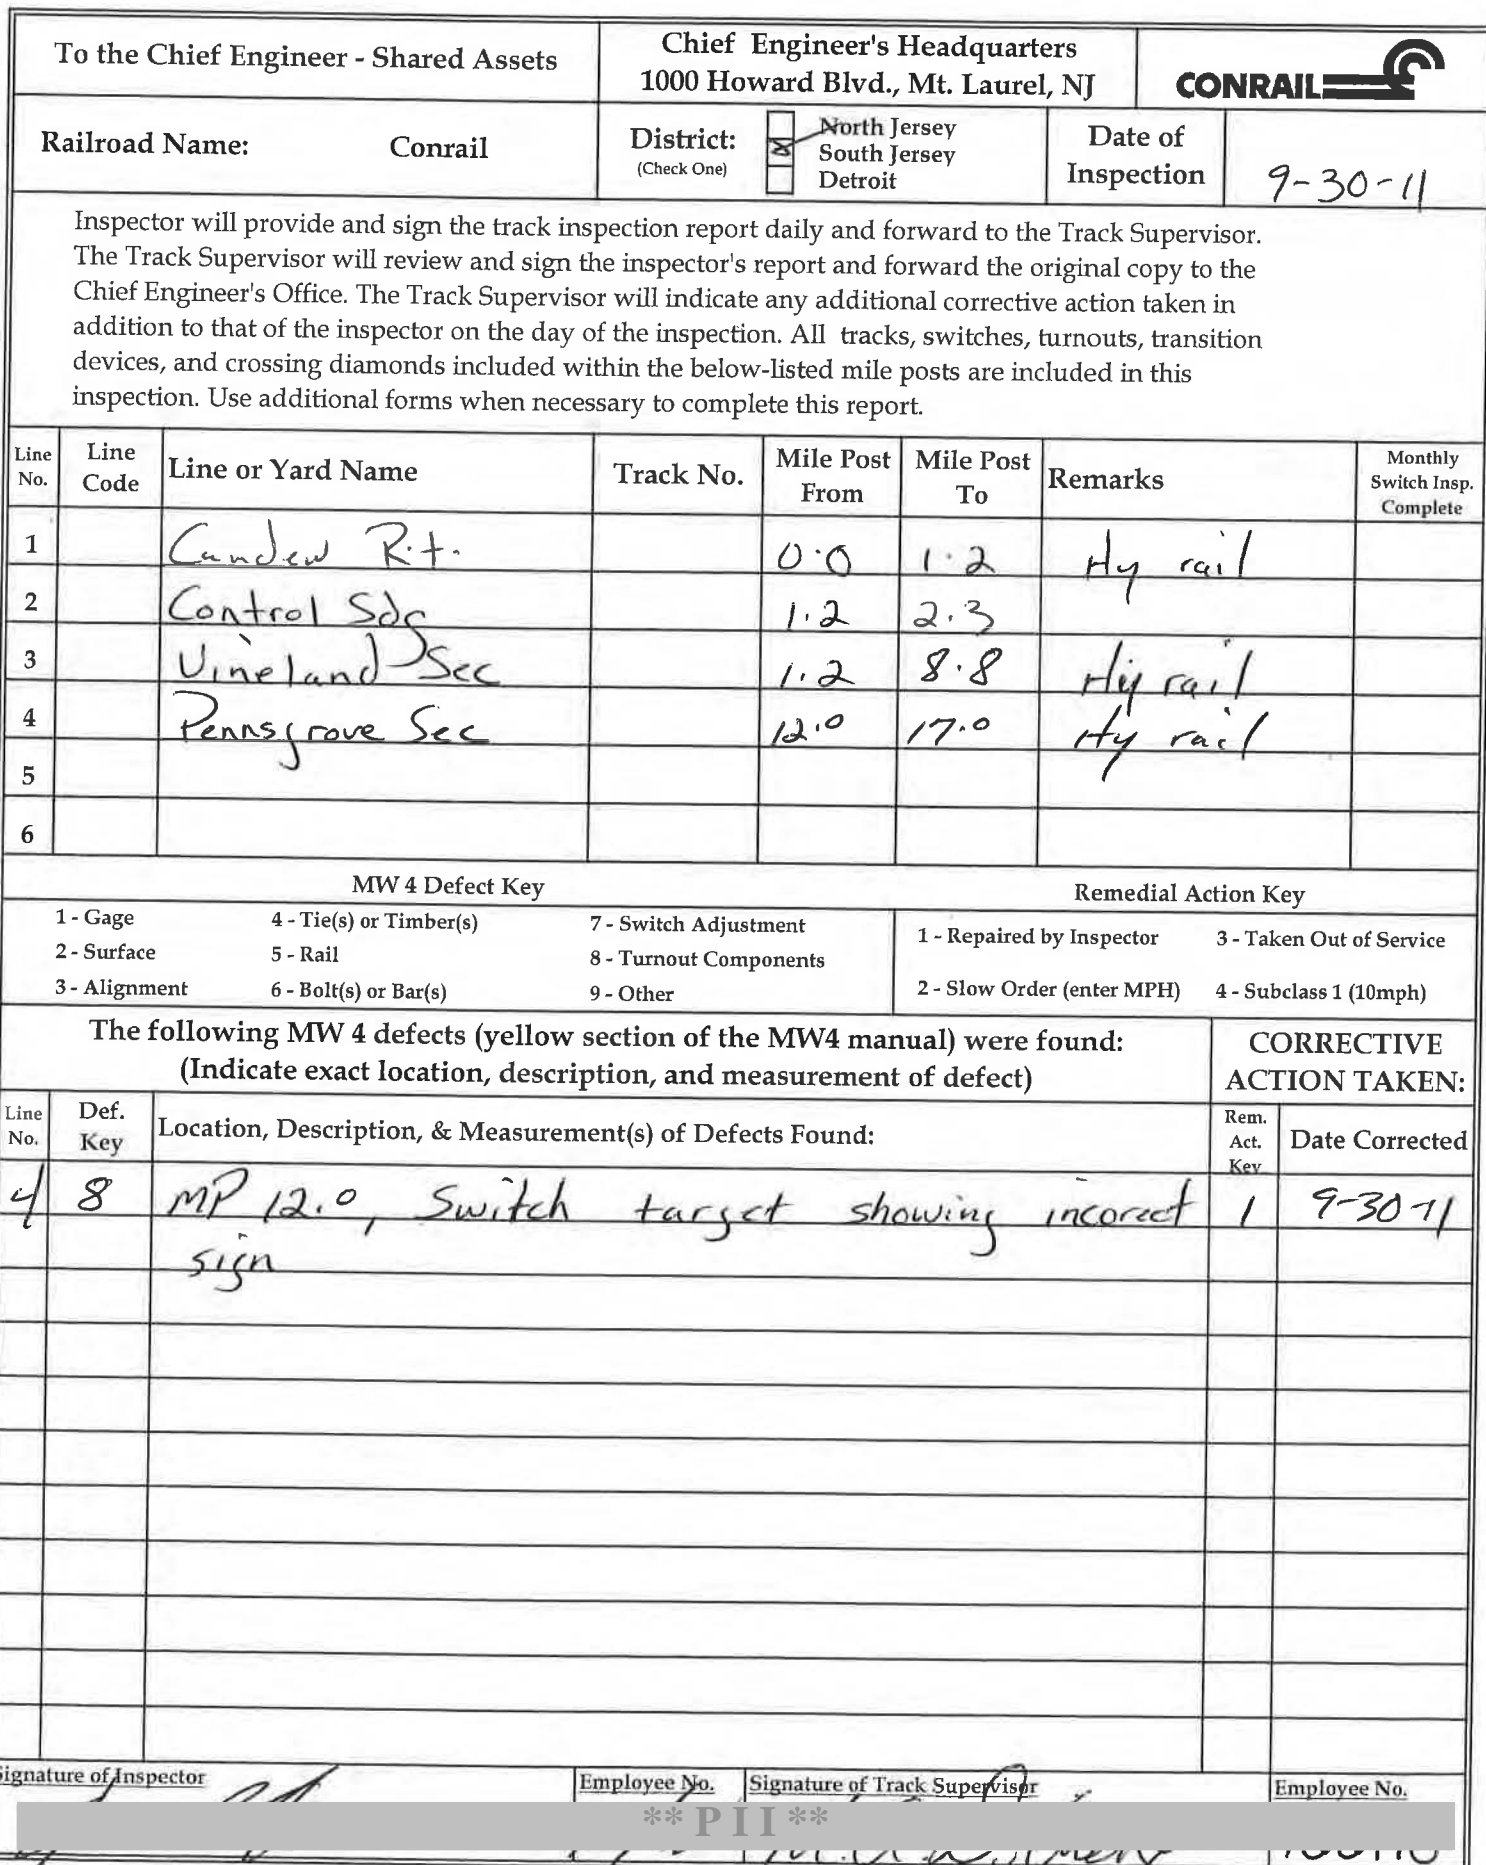 To the Chief Engineer - Shared Assets
Chief Engineer's Headquarters
1000 Howard Blvd., Mt. Laurel, NJ
CONRAIL
Railroad Name: Conrail
District:
(Check One)
North Jersey
South Jersey
Detroit
Date of
Inspection
9-30-11
Inspector will provide and sign the track inspection report daily and forward to the Track Supervisor.
The Track Supervisor will review and sign the inspector's report and forward the original copy to the
Chief Engineer's Office. The Track Supervisor will indicate any additional corrective action taken in
addition to that of the inspector on the day of the inspection. All tracks, switches, turnouts, transition
devices, and crossing diamonds included within the below-listed mile posts are included in this
inspection. Use additional forms when necessary to complete this report.
Line No. Line Code Line or Yard Name Track No. Mile Post From Mile Post To Remarks Monthly Switch Insp. Complete
1 Camden R.t. 0.0 1.2 Hy rail
2 Control Sdg 1.2 2.3
3 Vineland Sec 1.2 8.8 Hy rail
4 Pennsgrove Sec 12.0 17.0 Hy rail
5
6
MW 4 Defect Key Remedial Action Key
1 - Gage 4 - Tie(s) or Timber(s) 7 - Switch Adjustment 1 - Repaired by Inspector 3 - Taken Out of Service
2 - Surface 5 - Rail 8 - Turnout Components
3 - Alignment 6 - Bolt(s) or Bar(s) 9 - Other 2 - Slow Order (enter MPH) 4 - Subclass 1 (10mph)
The following MW 4 defects (yellow section of the MW4 manual) were found:
(Indicate exact location, description, and measurement of defect)
CORRECTIVE
ACTION TAKEN:
Line No. Def. Key Location, Description, & Measurement(s) of Defects Found: Rem. Act. Key Date Corrected
4 8 MP 12.0, Switch target showing incorect 1 9-30-11
sign
Signature of Inspector Employee No. Signature of Track Supervisor Employee No.
** P I I **